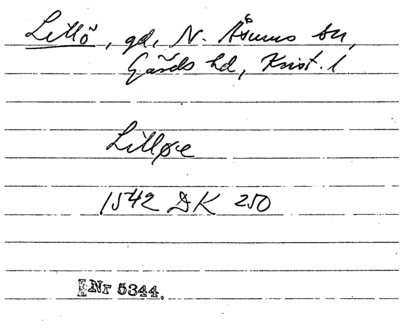 Lillö, gd, N. Åsums sn,
Gärds hd, Krist. l
Lilløe
1542 DK 250
Nr 5344.